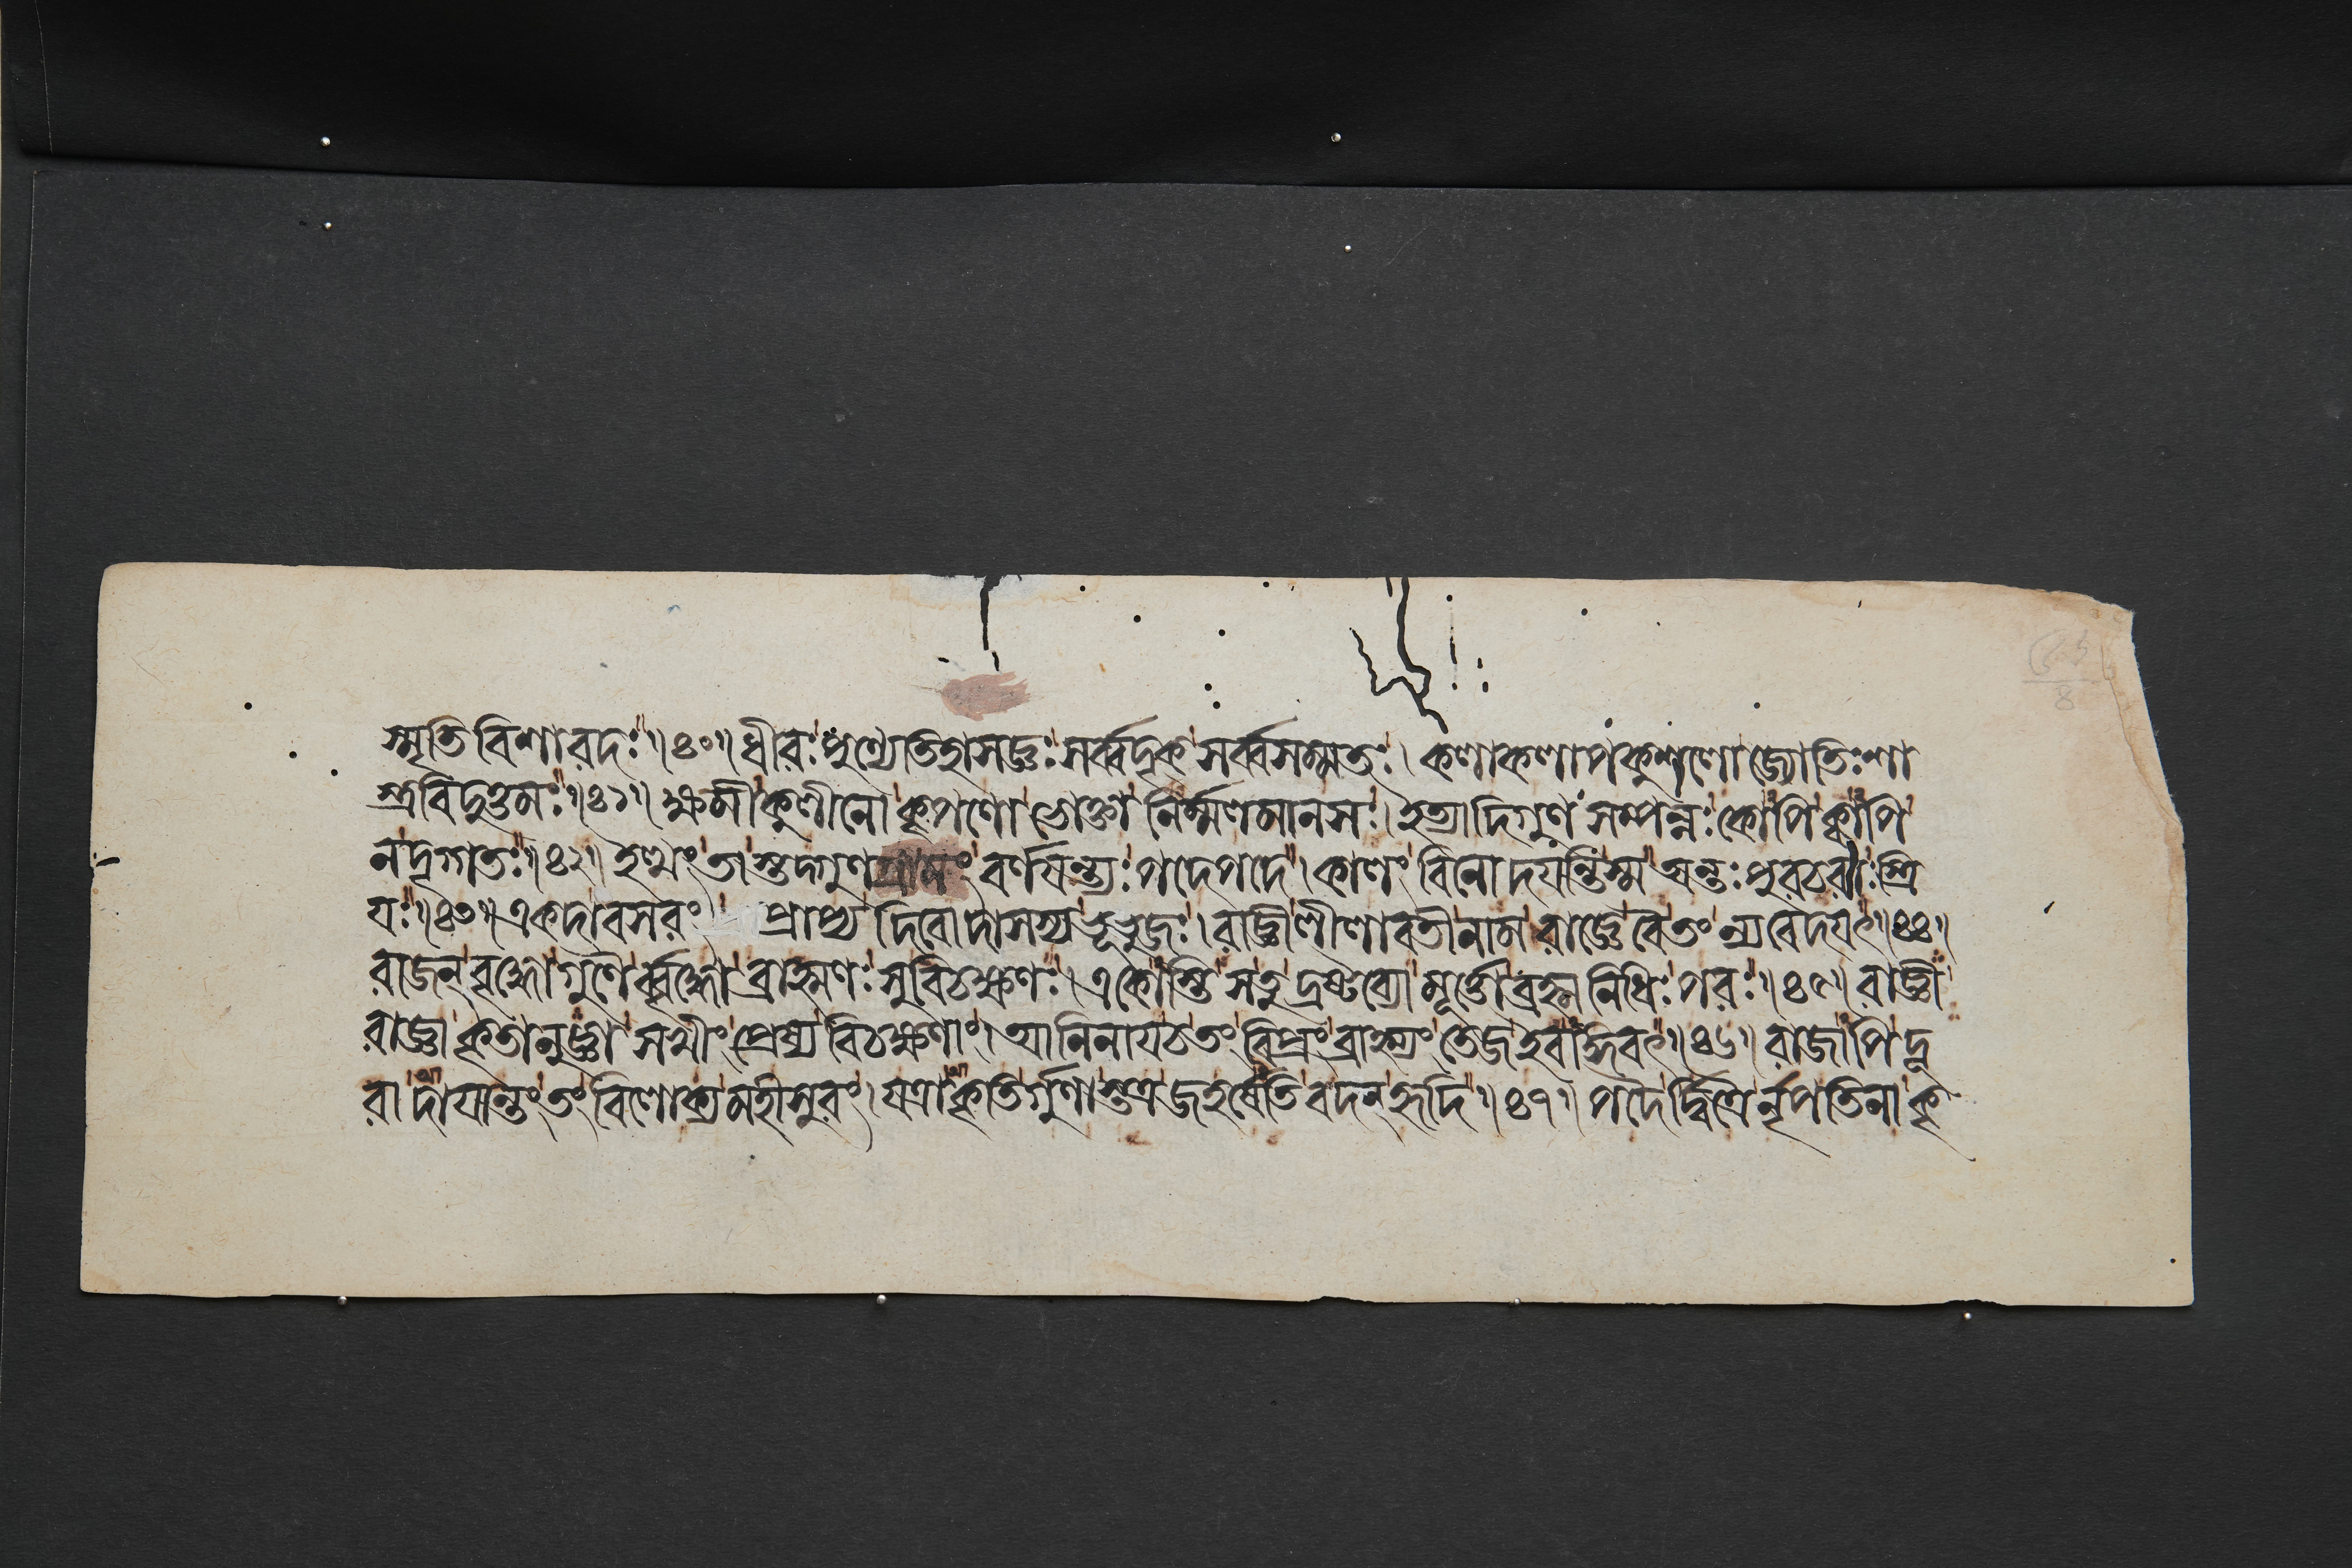 স্মৃতিবিশারদঃ॥৪০॥ধীরঃপুণ্যেতিহাসজ্ঞঃসর্ব্বদৃক্সর্ব্বসম্মতঃ।কলাকলাপকুশলোজ্যোতিঃশা
স্ত্রবিদুত্তমঃ॥৪১॥ক্ষমীকুলীনোকৃপণোভোক্তানির্ম্মলমানসঃ।ইত্যাদিগুণসম্পন্নঃকোপিক্বাপি
নদৃগ্গতঃ॥৪২॥ইত্থংতাস্তদ্গুণগ্রামংবর্ণযন্ত্যঃপদেপদে।কালংবিনোদযন্তিস্মঅন্তঃপুরচরাঃস্ত্রি
যঃ॥৪৩॥একদাবসরংপ্রাপ্যদিবোদাসস্যভূভুজঃ।রাজ্ঞীলীলাবতীনামরাজ্ঞেচৈতংন্যবেদযৎ॥৪৪॥
রাজন্বৃদ্ধোগুণৈর্ব্বৃদ্ধোব্রাহ্মণঃসুবিচক্ষণঃ।একোস্তিসতুদ্রষ্টব্যোমূর্ত্তোব্রহ্মনিধিঃপরঃ॥৪৫॥রাজ্ঞী
রাজ্ঞাকৃতানুজ্ঞাসখীংপ্রেষ্যবিচক্ষণাং।আনিনাযচতংবিপ্রংব্রাহ্ম্যংতেজইবাঙ্গবৎ॥৪৬॥রাজাপিদূ
রাদাযান্তংতংবিলোক্যমহীসুরং।যত্রাকৃতির্গুণাস্তত্রজহর্ষেতিবদন্হৃদি॥৪৭॥পদৈর্দ্বিত্রৈর্নৃপতিনাকৃ